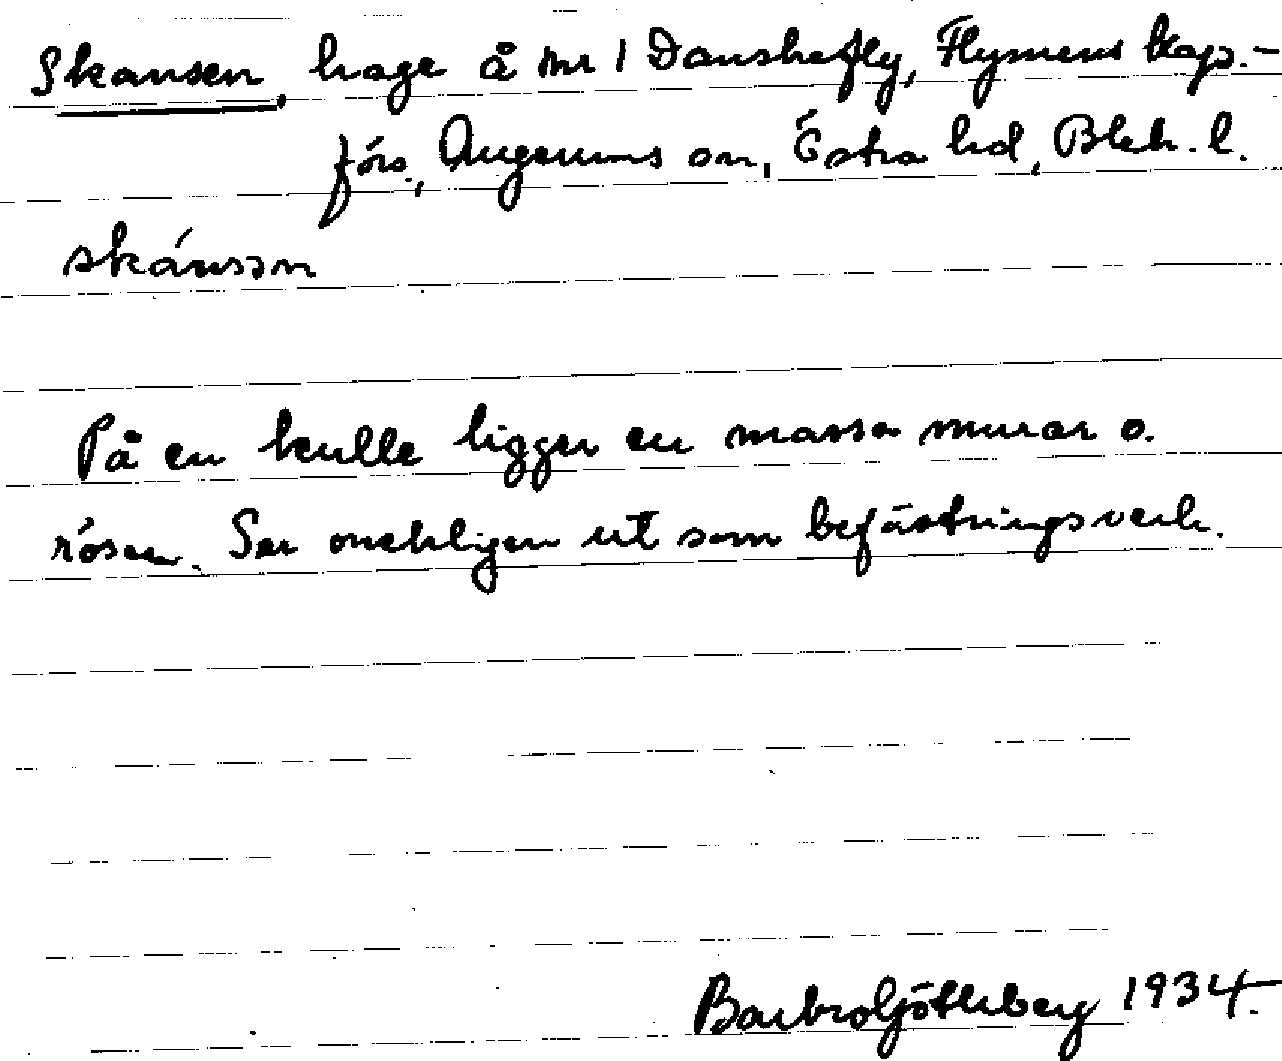 Skansen, hage å nr 1 Danskefly, Flymens kap.-
förs., Augerums sn, Östra hd, Blek. l.
skánsən
På en kulle ligger en massa murar o.
rösen. Ser onekligen ut som befästningsverk.
Barbro Götherberg 1934.